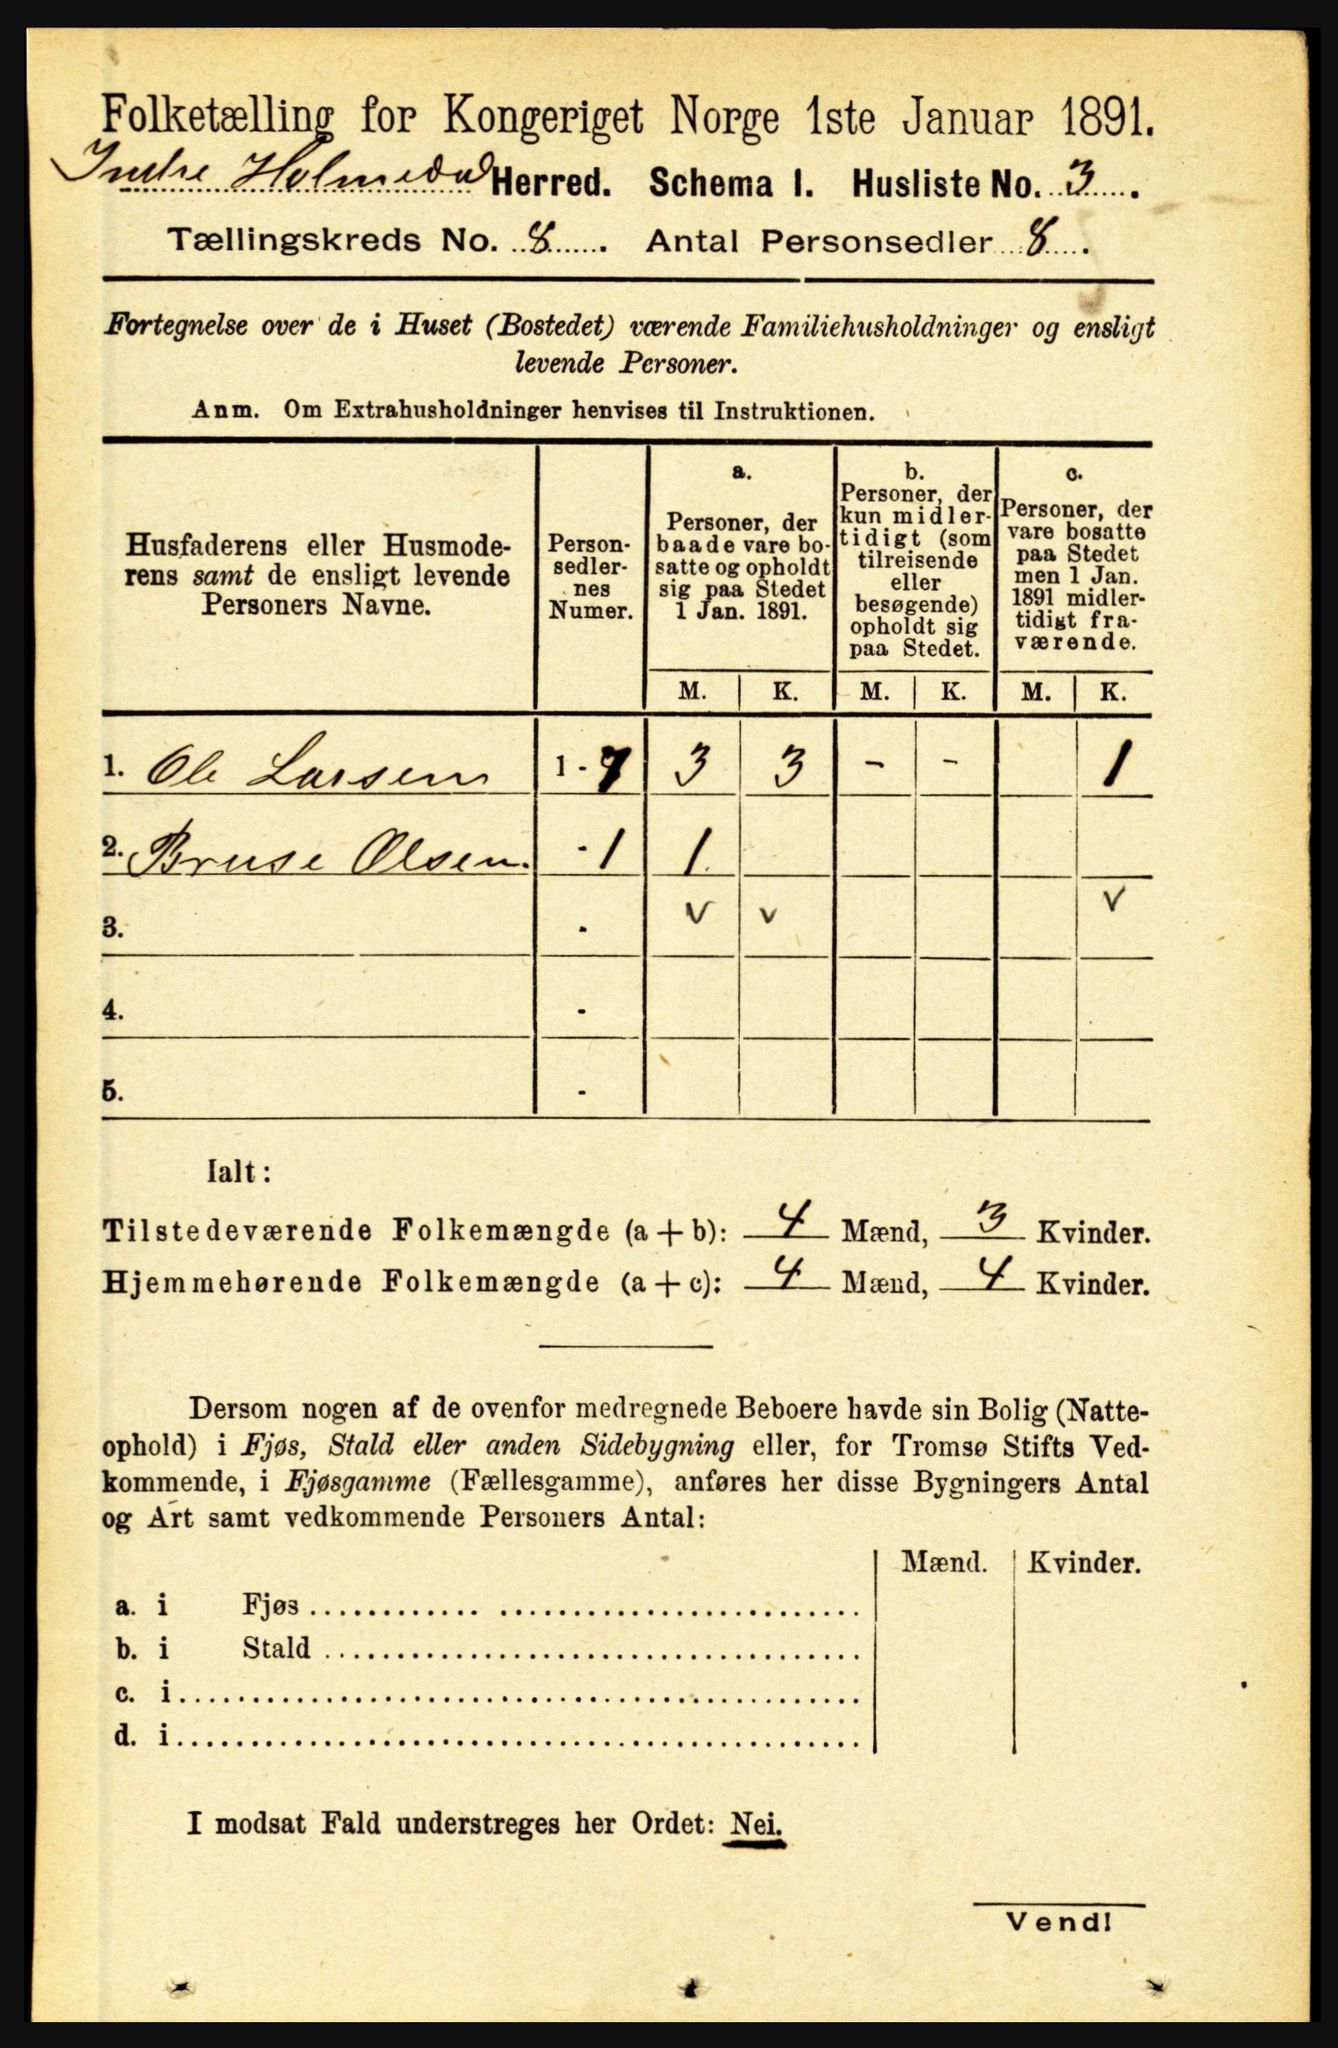 Folketælling for Kongeriget Norge 1ste Januar 1891.
Indre Holmedal Herred. Schema 1. Husliste No. 3.
Tællingskreds No. 8. Antal Personsedler 8.
Fortegnelse over de i Huset (Bostedet) værende Familiehusholdninger og ensligt
levende Personer.
Anm. Om Extrahusholdninger henvises til Instruktionen.
Husfaderens eller Husmode-
rens samt de ensligt levende
Personers Navne.
Person-
sedler-
nes
Numer.
a.
Personer, der
baade vare bo-
satte og opholdt
sig paa Stedet
1 Jan. 1891.
b.
Personer, der
kun midler-
tidigt (som
tilreisende
eller
besøgende)
opholdt sig
paa Stedet.
c.
Personer, der
vare bosatte
paa Stedet
men 1 Jan.
1891 midler-
tidigt fra-
værende.
M. K. M. K. M. K.
1. Ole Larsen 1 - 7 3 3 - - 1
2. Bruse Olsen. - 1 1
3. - v v v
4. -
5. -
Ialt:
Tilstedeværende Folkemængde (a + b): 4 Mænd, 3 Kvinder.
Hjemmehørende Folkemængde (a + c): 4 Mænd, 4 Kvinder.
Dersom nogen af de ovenfor medregnede Beboere havde sin Bolig (Natte-
ophold) i Fjøs, Stald eller anden Sidebygning eller, for Tromsø Stifts Ved-
kommende, i Fjøsgamme (Fællesgamme), anføres her disse Bygningers Antal
og Art samt vedkommende Personers Antal:
Mænd. Kvinder.
a. i Fjøs
b. i Stald
c. i
d. i
I modsat Fald understreges her Ordet: Nei.
Vend!